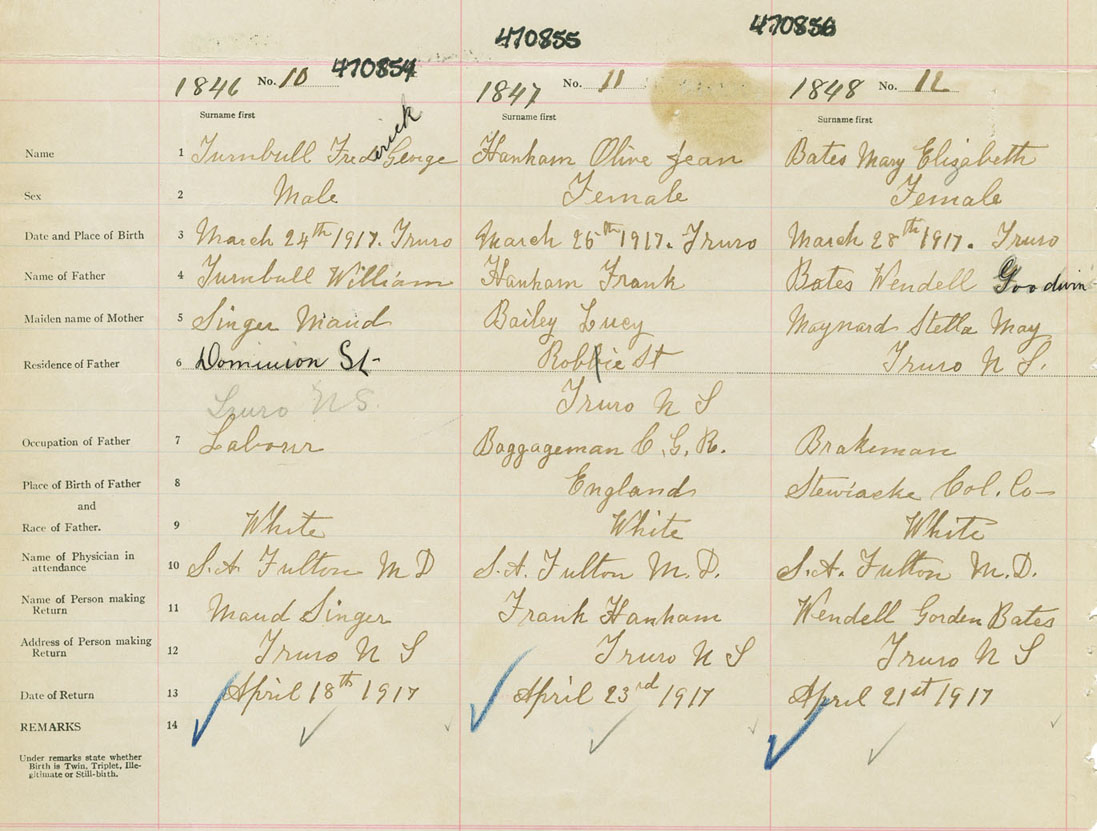 470854 470855 470856
1846 No. 10 1847 No. 11 1848 No. 12
Surname first Surname first Surname first
Name 1 Turnbull Frederick George Hanham Olive Jean Bates Mary Elizabeth
Sex 2 Male Female Female
Date and Place of Birth 3 March 24th 1917. Truro March 26th 1917. Truro March 28th 1917. Truro
Name of Father 4 Turnbull William Hanham Frank Bates Wendell Goodwin
Maiden name of Mother 5 Singer Maud Bailey Lucy Maynard Stella May
Residence of Father 6 Dominion St- Robbie St Truro N S.
Truro N S. Truro N S
Occupation of Father 7 Labour Baggageman C. G. R. Brakeman
Place of Birth of Father 8 England Stewiacke Col. Co
and
Race of Father. 9 White White White
Name of Physician in
attendance 10 S. A. Fulton M D S. A. Fulton M. D. S. A. Fulton M. D.
Name of Person making
Return 11 Maud Singer Frank Hanham Wendell Gorden Bates
Address of Person making
Return 12 Truro N S Truro N S Truro N S
Date of Return 13 April 18th 1917 April 23rd 1917 April 21st 1917
REMARKS 14
Under remarks state whether
Birth is Twin, Triplet, Ille-
gitimate or Still-birth.